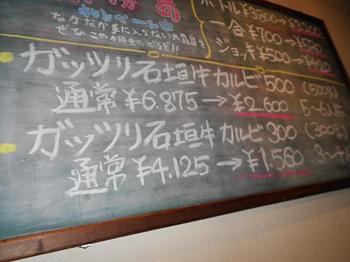 キャンペーン中
なかなか手に入らない
ぜひこの機会にどうぞ!!
ボトル¥3800→¥3,200
一合¥700→¥5
ジョッキ¥500→
ガッツリ石垣牛カルビ500(500g)
通常¥6.875→¥2.600 5~6人前
ガッツリ石垣牛カルビ300(300g)
通常¥4.125→¥1,560 3~4人